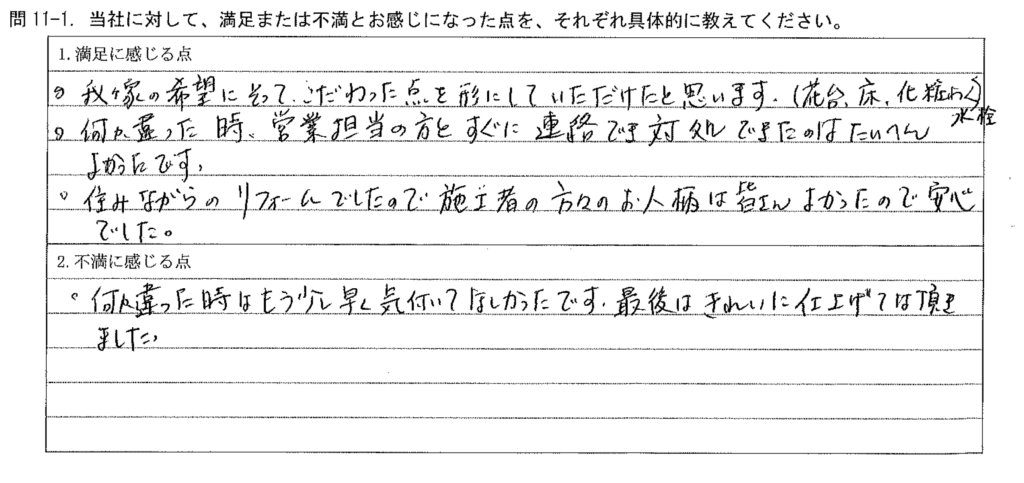 問11-1. 当社に対して、満足または不満とお感じになった点を、それぞれ具体的に教えてください。
1.満足に感じる点
。我が家の希望にそって、こだわった点を形にしていただけたと思います。(花台、床、化粧わく)
水栓
。何か違った時、営業担当の方とすぐに連絡でき対処できたのはたいへん
よかったです。
。住みながらのリフォームでしたので施工者の方々のお人柄は皆さんよかったので安心
でした。
2.不満に感じる点
。何か違った時はもう少し早く気付いてほしかったです。最後はきれいに仕上げては頂き
ました。